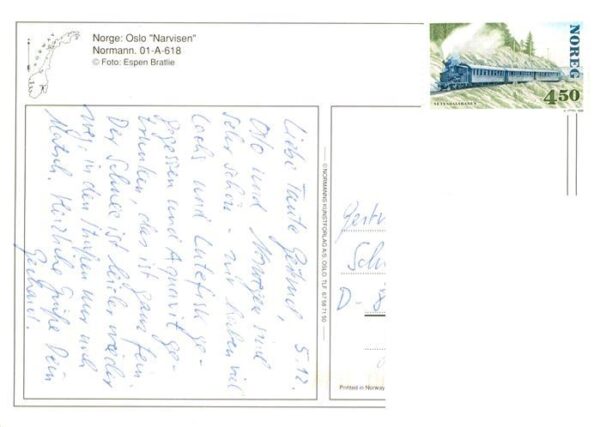 NORWAY
Norge: Oslo "Narvisen"
Normann. 01-A-618
© Foto: Espen Bratlie
NOREG
SETESDALSBANEN
4.50
5.12.
Liebe Tante Gertrud,
Oslo und Norwegen sind
sehr schön - wir haben viel
Lachs und Lutefisk ge-
gegessen und Aquavit ge-
trunken, das ist ganz fein
Der Schnee ist leider wieder
weg, in den Straßen nur noch
Matsch. Herzliche Grüße Dein
© NORMANNS KUNSTFORLAG A/S, OSLO. TLF. 67 56 71 50
Gertr
Sch
D-8
Printed in Norway